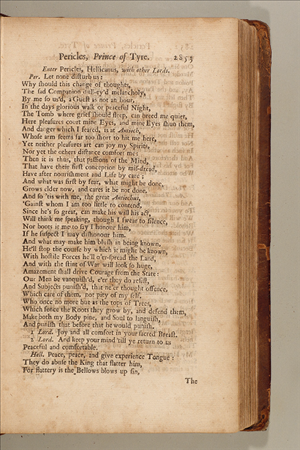 Pericles, Prince of Tyre. 2253
Enter Pericles, Hellicanus, with other Lords.
Per. Let none disturb us:
Why should this charge of thoughts,
The sad Companion dull-ey'd melancholy,
By me so us'd, a Guest as not an hour,
In the days glorious walk or peaceful Night,
The Tomb where grief should sleep, can breed me quiet,
Here pleasures court mine Eyes, and mine Eyes shun them,
And danger which I feared, is at Antioch,
Whose arm seems far too short to hit me here,
Yet neither pleasures art can joy my Spirits,
Nor yet the others distance comfort me:
Then it is thus, that passions of the Mind,
That have their first conception by mis-dread,
Have after nourishment and Life by care;
And what was first by fear, what might be done,
Grows elder now, and cares it be not done.
And so 'tis with me, the great Antiochus,
'Gainst whom I am too little to contend,
Since he's so great, can make his will his act,
Will think me speaking, though I swear to silence,
Nor boots it me to say I honour him,
If he suspect I may dishonour him.
And what may make him blush in being known,
He'll stop the course by which it might be known,
With hostile Forces he'll o'er-spread the Land,
And with the stint of War will look so huge,
Amazement shall drive Courage from the State:
Our Men be vanquish'd, e'er they do resist,
And Subjects punish'd, that ne'er thought offence.
Which care of them, not pity of my self,
Who once no more but as the tops of Trees,
Which fence the Roots they grow by, and defend them,
Make both my Body pine, and Soul to languish,
And punish that before that he would punish.
1 Lord. Joy and all comfort in your sacred Breast.
2 Lord. And keep your mind 'till ye return to us
Peaceful and comfortable.
Hell. Peace, peace, and give experience Tongue:
They do abuse the King that flatter him,
For flattery is the Bellows blows up sin,
The